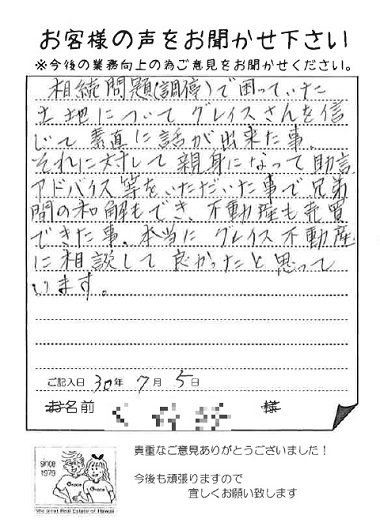 お客様の声をお聞かせ下さい
※今後の業務向上の為ご意見をお聞かせください。
相続問題(調停)で困っていた
土地について グレイスさんを信
じて 素直に話が出来た事、
それに対して 親身になって助言
アドバイス等をいただいた事で兄弟
間の和解もでき、不動産も売買
できた事、本当に グレイス不動産
に相談して良かったと思って
います。
ご記入日 30年 7月 5日
お名前 様
貴重なご意見ありがとうございました！
今後も頑張りますので
宜しくお願い致します
since
1979
Grace
Grace
We Select Real Estate of Hawaii